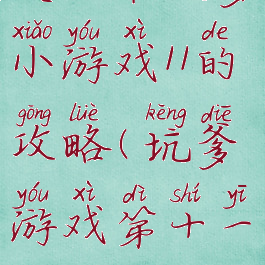 xiǎo yóu xì de
小游戏11的
gōng lüè kēng diē
攻略(坑爹
yóu xì dì shí yī
游戏第十一